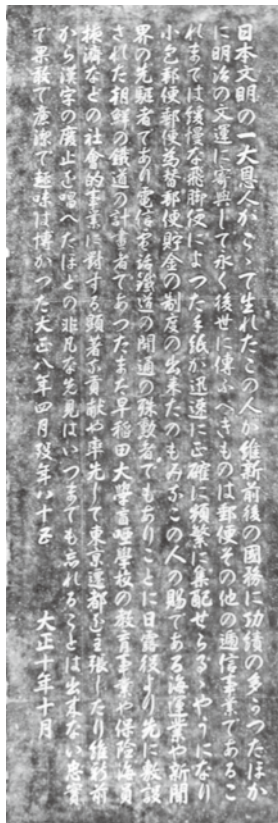 日本文明の一大恩人がこゝで生れたこの人が維新前後の國務に功績の多かつたほか
に明治の文運に寄與して永く後世に傳ふべきものは郵便その他の逓信事業であるこ
れまでは緩慢な飛脚便によつた手紙が迅速に正確に頻繁に集配せらるゝやうになり
小包郵便郵便為替郵便貯金の制度の出来たのもみなこの人の賜である海運業や新聞
界の先駆者であり電信電話鐵道の開通の殊勲者でもありことに日露役より先に敷設
された朝鮮の鐵道の計畫者であつたまた早稲田大學盲唖學校の教育事業や保険海員
掖済などの社會的事業に對する顕著な貢献や率先して東京遷都を主張したり維新前
から漢字の廃止を唱へたほどの非凡な先見はいつまでも忘れることは出来ない忠實
で果敢で廉潔で趣味は博かつた大正八年四月歿年八十五 大正十年十月